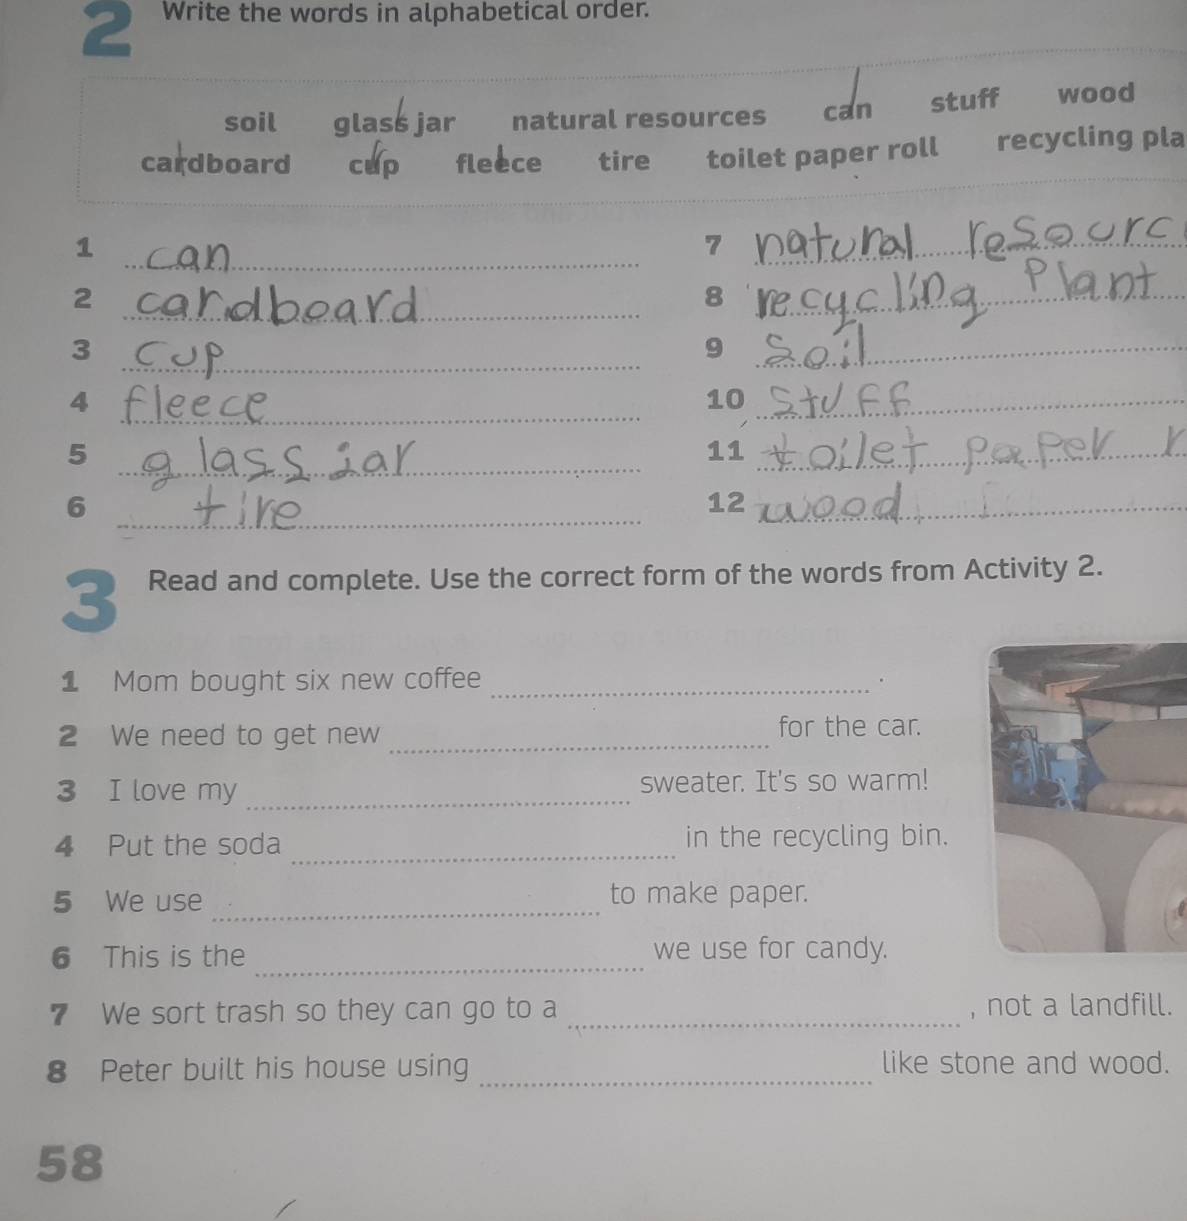 2 Write the words in alphabetical order.
soil glass jar natural resources can stuff wood
cardboard cup fleece tire toilet paper roll recycling pla
1 can
2 cardboard
3 cup
4 fleece
5 glass jar
6 tire
7 natural resourc
8 recycling Plant
9 Soil
10 Stuff
11 toilet paper r
12 wood
3 Read and complete. Use the correct form of the words from Activity 2.
1 Mom bought six new coffee .
2 We need to get new for the car.
3 I love my sweater. It's so warm!
4 Put the soda in the recycling bin.
5 We use to make paper.
6 This is the we use for candy.
7 We sort trash so they can go to a , not a landfill.
8 Peter built his house using like stone and wood.
58